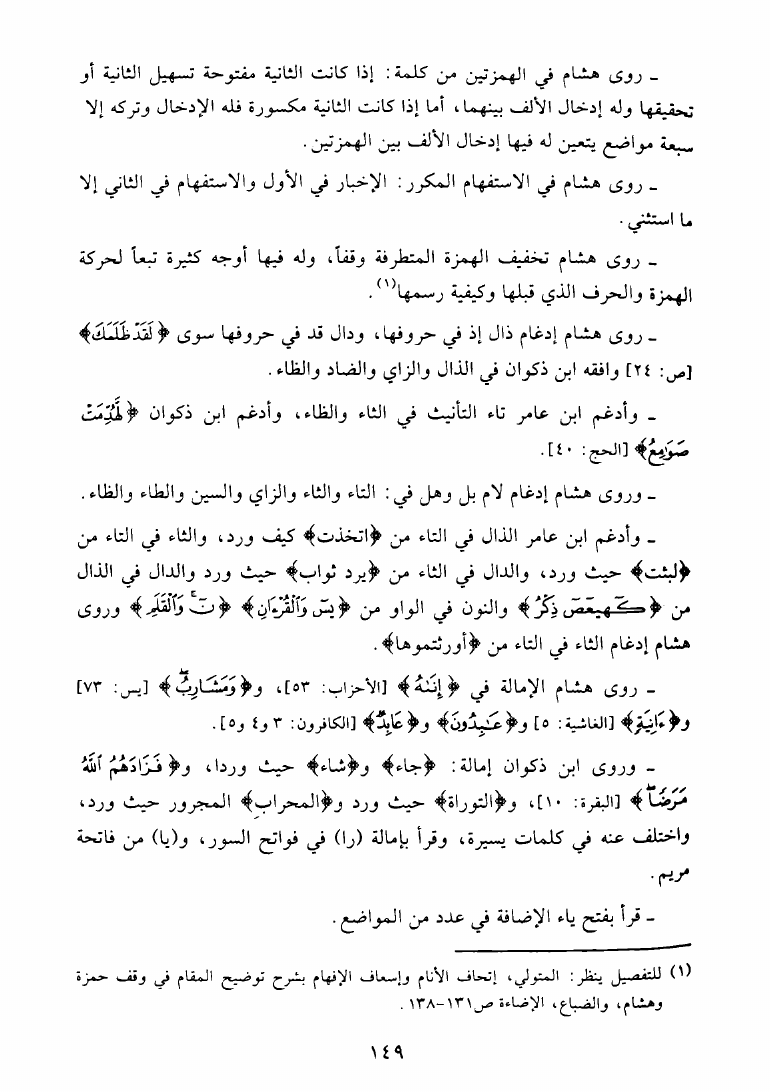 ـ روى هشام في الهمزتين من كلمة: إذا كانت الثانية مفتوحة تسهيل الثانية أو
تحقيقها وله إدخال الألف بينهما، أما إذا كانت الثانية مكسورة فله الإدخال وتركه إلا
سبعة مواضع يتعين له فيها إدخال الألف بين الهمزتين.
ـ روى هشام في الاستفهام المكرر: الإخبار في الأول والاستفهام في الثاني إلا
ما استثني.
ـ روى هشام تخفيف الهمزة المتطرفة وقفاً، وله فيها أوجه كثيرة تبعاً لحركة
الهمزة والحرف الذي قبلها وكيفية رسمها(١).
ـ روى هشام إدغام ذال إذ في حروفها، ودال قد في حروفها سوى ﴿لَقَدْ ظَلَمَكَ﴾
[ص: ٢٤] وافقه ابن ذكوان في الذال والزاي والضاد والظاء.
ـ وأدغم ابن عامر تاء التأنيث في الثاء والظاء، وأدغم ابن ذكوان ﴿لَّهُدِّمَتْ
صَوَامِعُ﴾ [الحج: ٤٠].
ـ وروى هشام إدغام لام بل وهل في: التاء والثاء والزاي والسين والطاء والظاء.
ـ وأدغم ابن عامر الذال في التاء من ﴿اتخذت﴾ كيف ورد، والثاء في التاء من
﴿لبثت﴾ حيث ورد، والدال في الثاء من ﴿يرد ثواب﴾ حيث ورد والدال في الذال
من ﴿كٓهيعٓصٓ ذِكْرُ﴾ والنون في الواو من ﴿يسٓ وَٱلْقُرْءَانِ﴾ ﴿نٓ وَٱلْقَلَمِ﴾ وروى
هشام إدغام الثاء في التاء من ﴿أورثتموها﴾.
ـ روى هشام الإمالة في ﴿إِنَىٰهُ﴾ [الأحزاب: ٥٣]، و﴿وَمَشَارِبُ﴾ [يس: ٧٣]
و﴿ءَانِيَةٍ﴾ [الغاشية: ٥] و﴿عَٰبِدُونَ﴾ و﴿عَابِدٌ﴾ [الكافرون: ٣ و٤ و٥].
ـ وروى ابن ذكوان إمالة: ﴿جاء﴾ و﴿شاء﴾ حيث وردا، و﴿فَزَادَهُمُ ٱللَّهُ
مَرَضًا﴾ [البقرة: ١٠]، و﴿التوراة﴾ حيث ورد و﴿المحراب﴾ المجرور حيث ورد،
واختلف عنه في كلمات يسيرة، وقرأ بإمالة (را) في فواتح السور، و(يا) من فاتحة
مريم.
ـ قرأ بفتح ياء الإضافة في عدد من المواضع.
(١) للتفصيل ينظر: المتولي، إتحاف الأنام وإسعاف الإفهام بشرح توضيح المقام في وقف حمزة
وهشام، والضباع، الإضاءة ص١٣١-١٣٨.
١٤٩